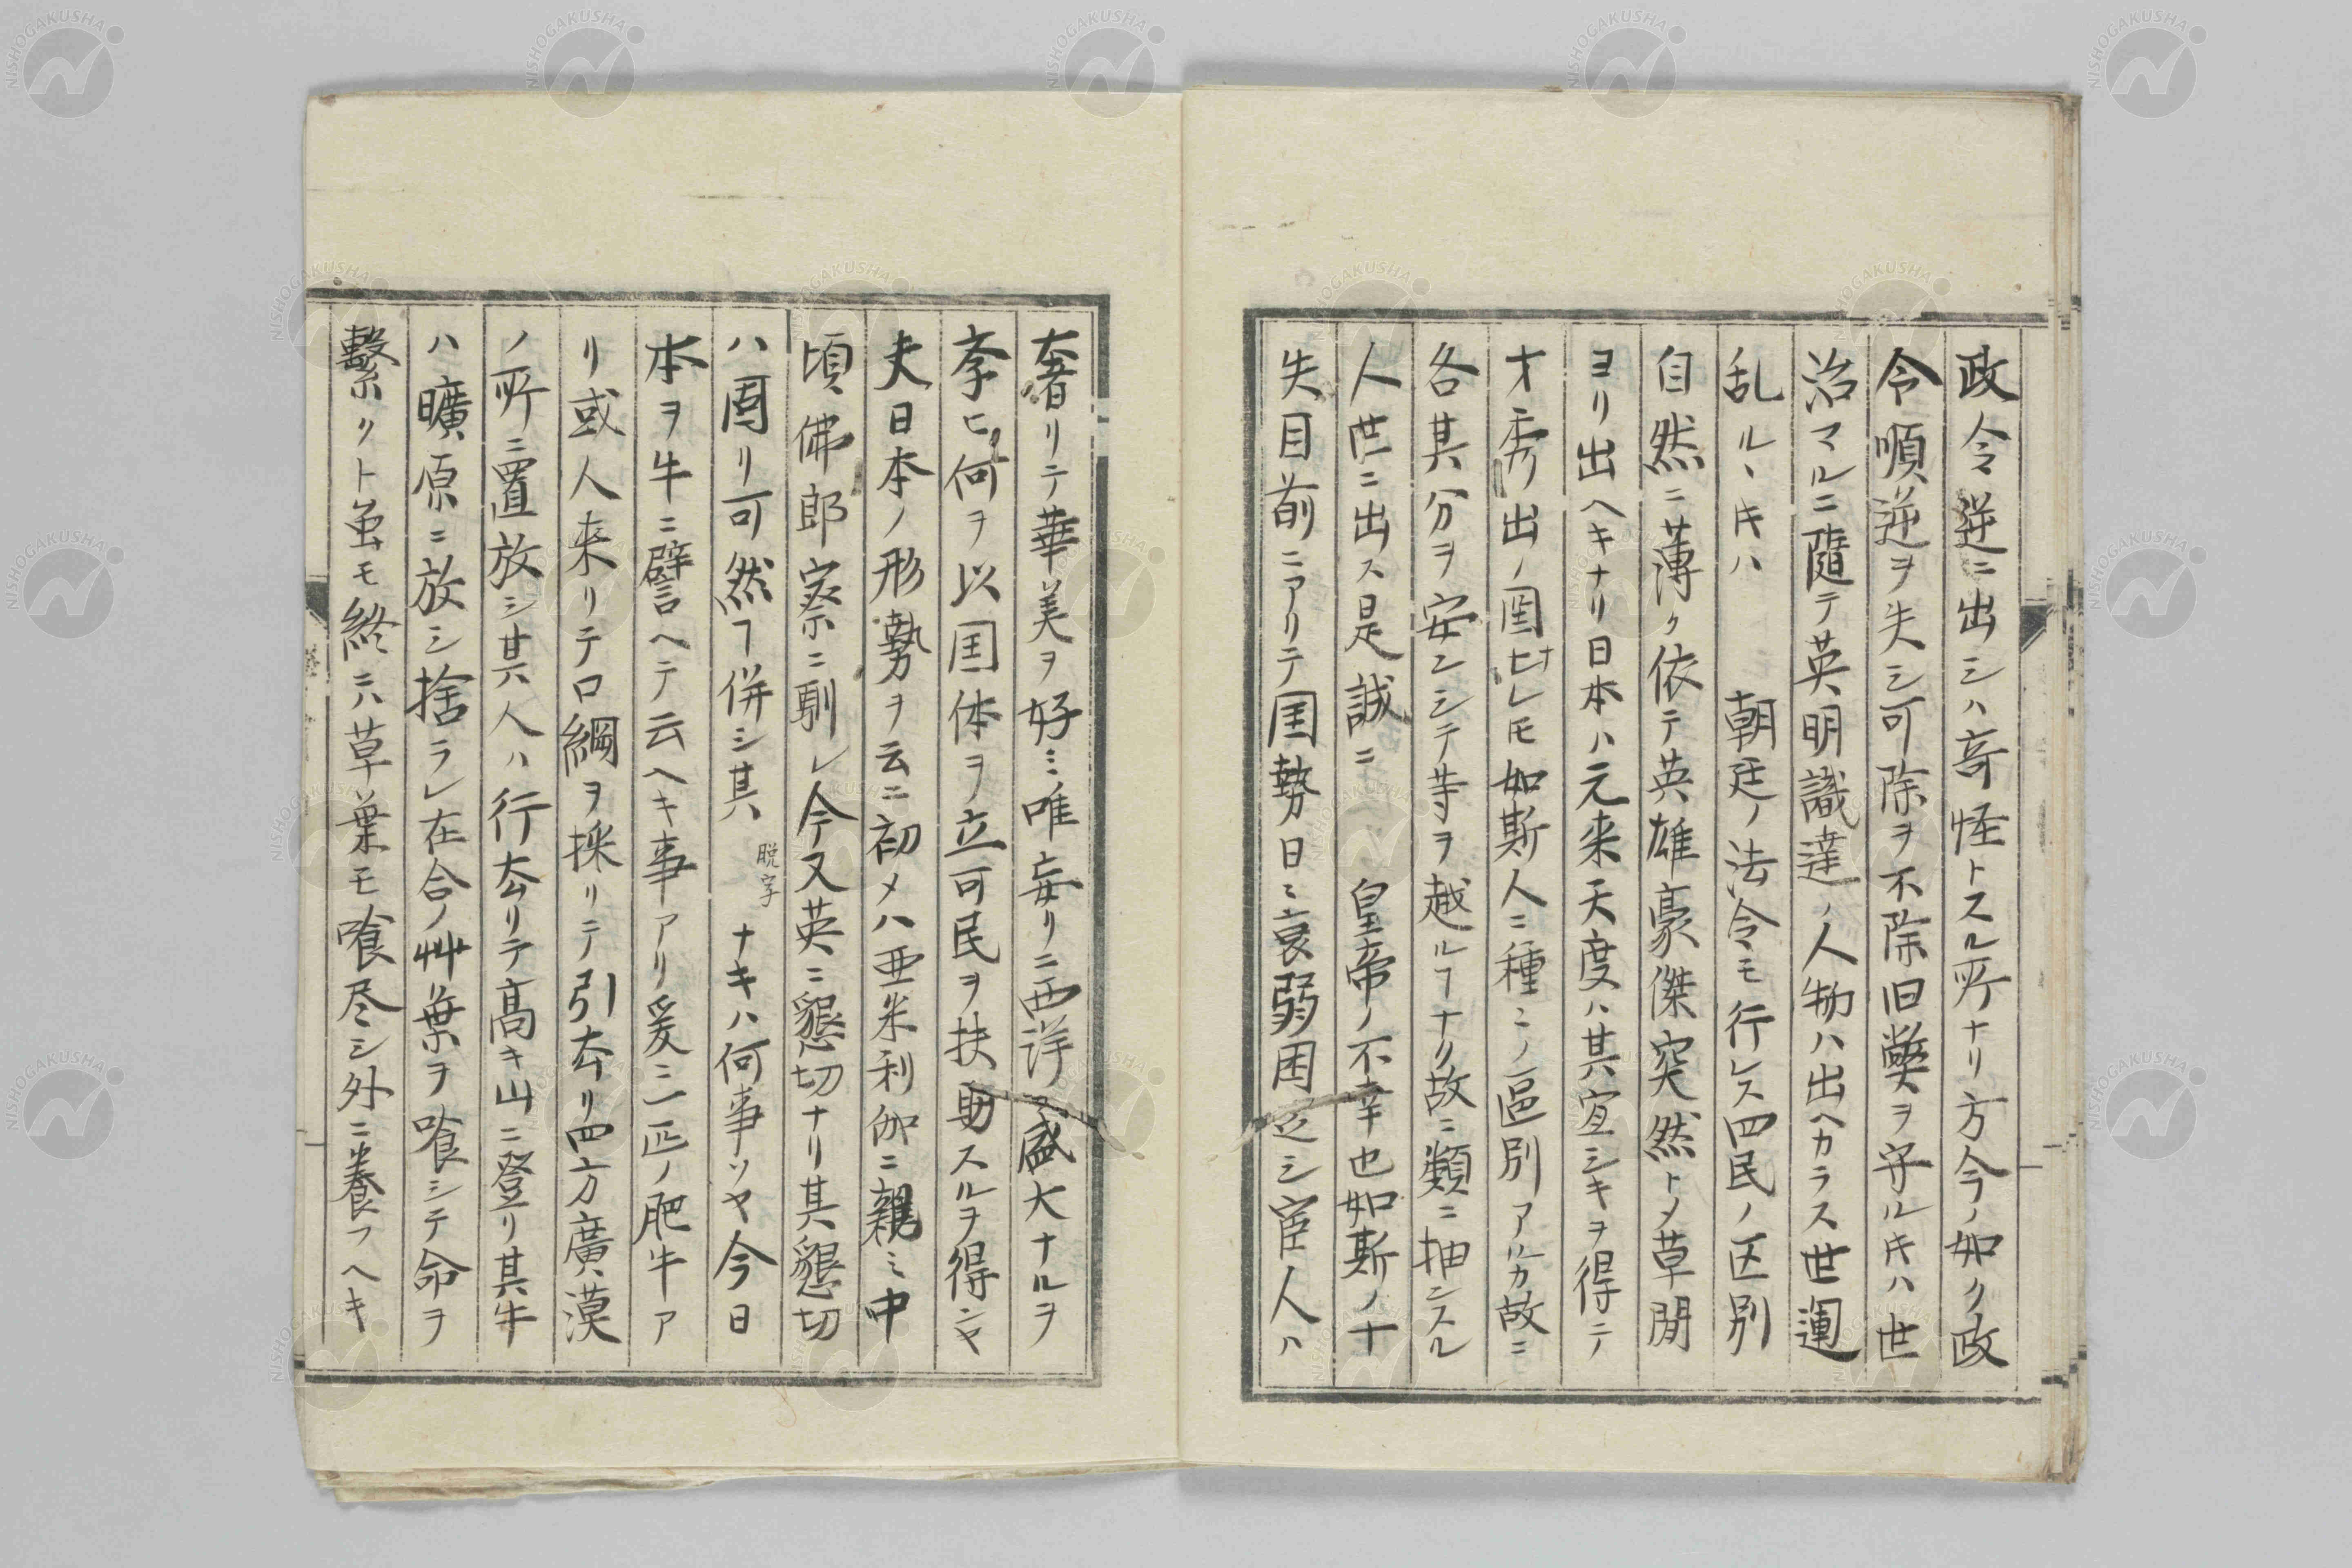 政令逆ニ出シハ奇怪トスル所ナリ方今ノ如ク政
令順逆ヲ失シ可除ヲ不除旧弊ヲ守ル𪜈ハ世
治マルニ随テ英明識達ノ人物ハ出ヘカラス世運
乱ルヽ𪜈ハ　朝廷ノ法令モ行レス四民ノ区別
自然ニ薄ク依テ英雄豪傑突然トメ草間
ヨリ出ヘキナリ日本ハ元来天度ハ其宜シキヲ得テ
才秀出ノ国ナレ𪜈如斯人ニ種ニノ區別アルカ故ニ
各其分ヲ安ンシテ等ヲ越ルヿナク故ニ類ニ抽ンスル
人世ニ出ス是誠ニ　皇帝ノ不幸也如斯ノ十
失目前ニアリテ国勢日ミ衰弱困乏シ官人ハ
奢リテ華美ヲ好ミ唯妄リニ西洋ノ盛大ナルヲ
李ヒ何ヲ以国体ヲ立可民ヲ扶助スルヲ得ンヤ
夫日本ノ形勢ヲ云ニ初メハ亜米利伽ニ親ミ中
頃佛郎察ニ馴レ今又英ニ懇切ナリ其懇切
ハ固リ可然ヿ併シ其　脱字　ナキハ何事ソヤ今日
本ヲ牛ニ譬ヘテ云ヘキ事アリ爰ニ一疋ノ肥牛ア
リ或人来リテ口綱ヲ採リテ引去リ四方廣漠
ノ所ニ置放シ其人ハ行去リテ高キ山ニ登リ其牛
ハ曠原ニ放シ捨ラレ在合ノ艸葉ヲ喰シテ命ヲ
繋クト虽モ終ニハ草葉モ喰尽シ外ニ養フヘキ